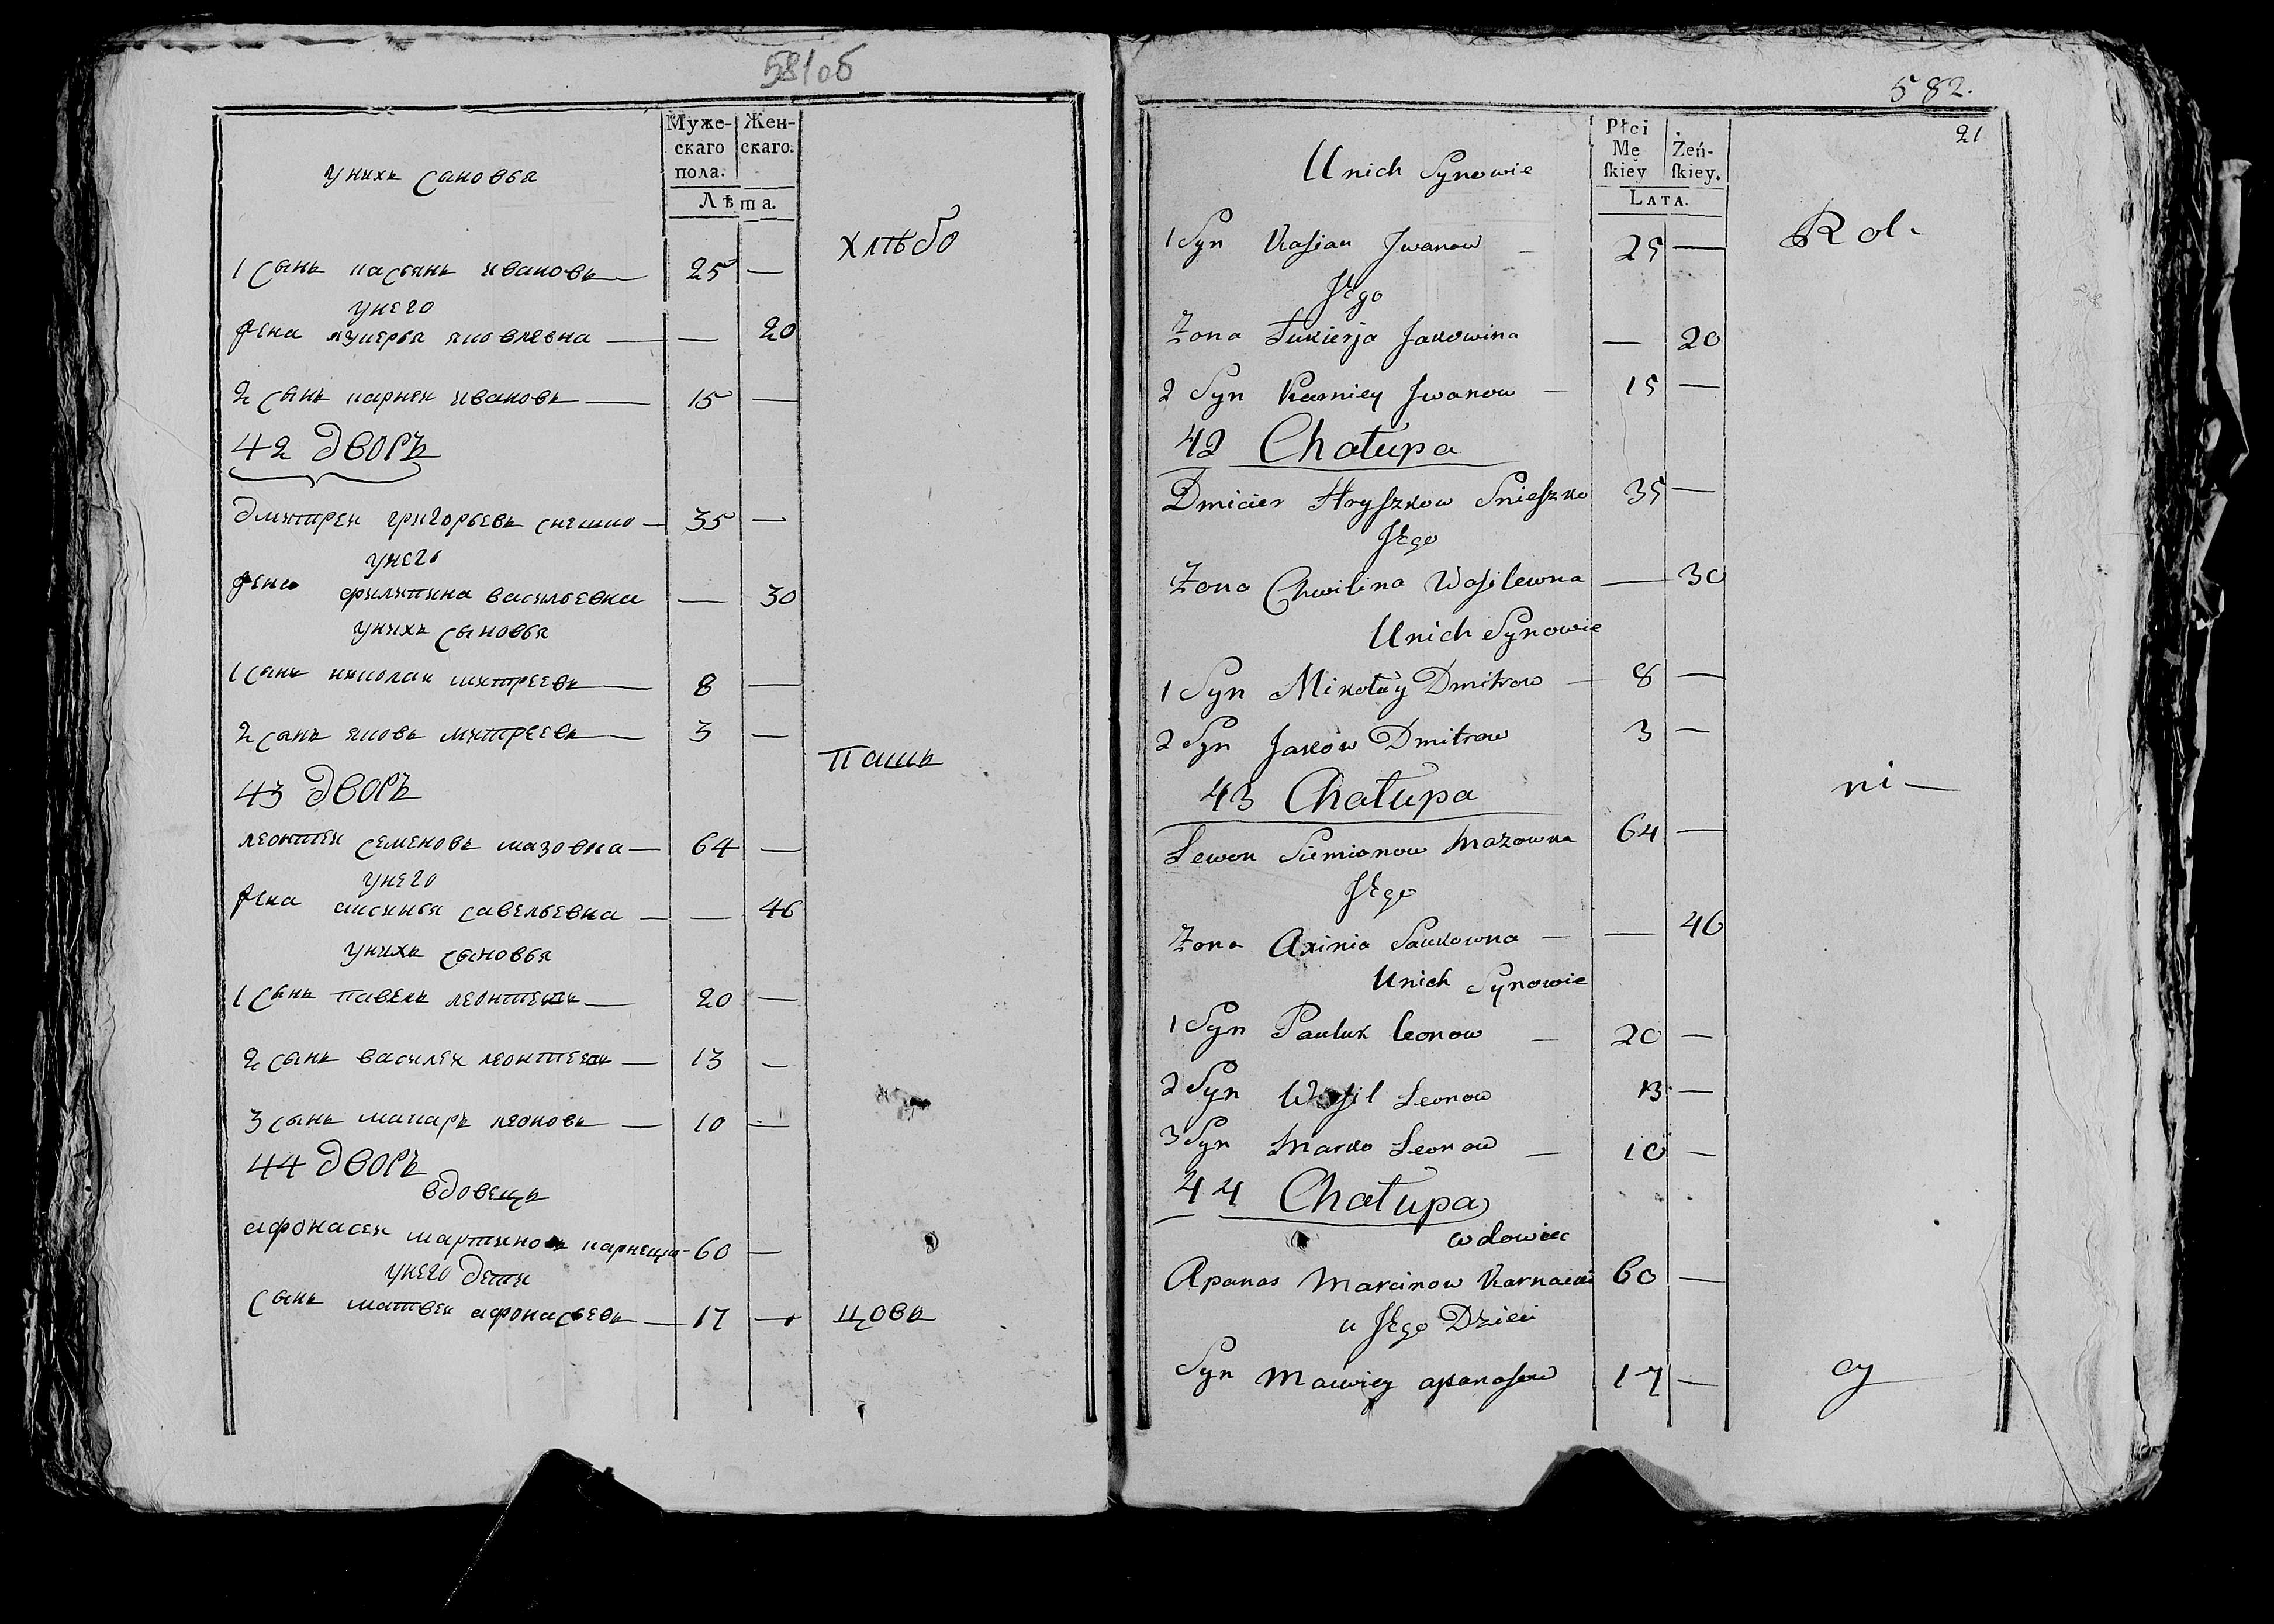 581об
Муже- Жен-
скаго скаго.
пола.
Лѣта.
унихъ сановья
хлѣбо
1 сынъ касьянъ ивановъ — 25 —
унего
жена лукерья яковлевна — — 20
2 сынъ карней ивановъ — 15 —
42 дворъ
дмитрей григорьевъ снешко — 35 —
унего
жена филипина васильевна — 30
унихъ сыновья
1 сынъ николай митреевъ — 8 —
2 санъ яковъ митреевъ — 3 —
пашъ
43 дворъ
леонтей семеновъ мазовка — 64 —
унего
жена аксинья савельевна — — 46
унихъ сыновья
1 сынъ павелъ — 20 —
2 сынъ василей — 13 —
3 сынъ макаръ леоновъ — 10 —
44 дворъ
вдовецъ
афонасей мартиновъ 60 —
унего дети
сынъ матвей афонасьевъ — 17 — цовъ
582.
21
Płci Żeń-
Mę skiey.
skiey
LATA.
Unich Synowie
Rol-
1 Syn Kasian Jwanow — 25 —
Jego
Żona Łukierja Jakowina — 20
2 Syn Karniey Jwanow — 15 —
42 Chałupa
Dmicier Hryszkow Snieszko 35 —
Jego
Żona Chwilina Wasilewna — 30
Unich Synowie
1 Syn Mikołay Dmitrow — 8 —
2 Syn Jakow Dmitrow 3 —
43 Chałupa
ni —
Lewon Siemionow Mazowka 64 —
Jego
Żona Axinia Sawkowna — — 46
Unich Synowie
1 Syn Pauluk Leonow — 20 —
2 Syn Wasil Leonow 13 —
3 Syn Marko Leonow — 10 —
44 Chałupa
wdowiec
Apanas Marcinow 60 —
u Jego Dzieci
Syn Mawiey apanasow 17 — cy